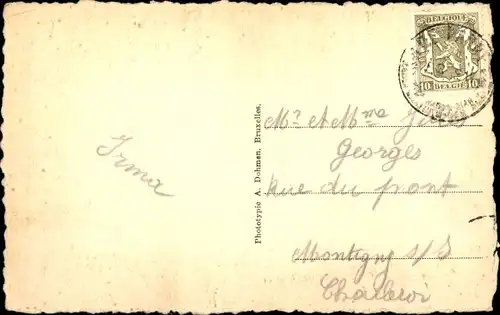 BELGIQUE
10 BELGIË 10
Irma
Phototypie A. Dohmen, Bruxelles.
Mr et Mme Jules
Georges
Rue du pont
Montigny s/S
Charleroi